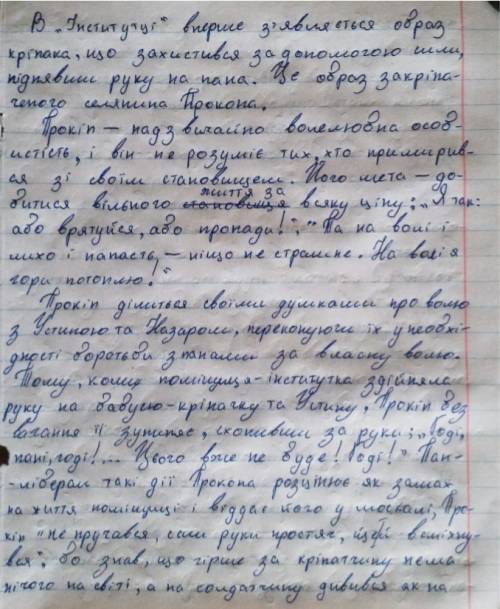 В „Інститутці" вперше з'являється образ
кріпака, що захистився за допомогою сили,
піднявши руку на пана. Це образ закріпа-
ченого селянина Прокопа.
Прокіп – надзвичайно волелюбна особ-
истість, і він не розуміє тих, хто примирив-
ся зі своїм становищем. Його мета – до-
битися вільного життя за всяку ціну: „Я так:
або врятуйся, або пропади!"; "Та на волі і
лихо і напасть, – ніщо не страшне. На волі я
гори потоплю!"
Прокіп ділиться своїми думками про волю
з Устиною та Назаром, переконуючи їх у необхі-
дності боротьби з панами за власну волю.
Тому, коли поміщиця-інститутка здійняла
руку на бабусю-кріпачку та Устину, Прокіп без
вагання її зупиняє, схопивши за руки: „Годі,
пані, годі!... Цього вже не буде! Годі!" Пан-
-ліберал такі дії Прокопа розцінює як замах
на життя поміщиці і віддає його у москалі, Про-
кіп "не пручався, сам руки простяг, ще й всміхну-
вся", бо знав, що гірше за кріпатчину нема
нічого на світі, а на солдатчину дивився як на